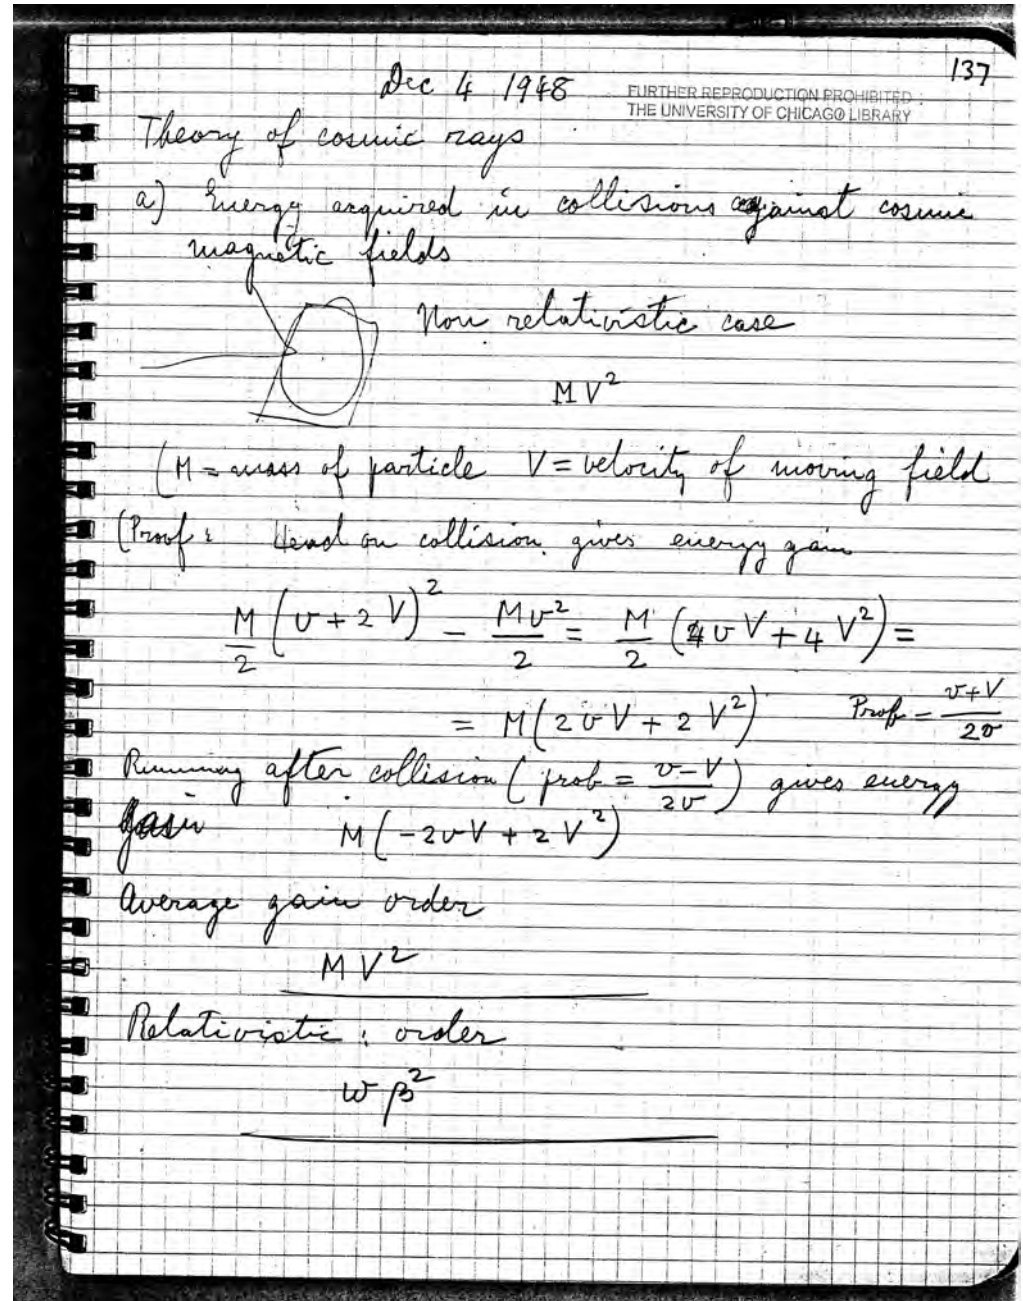 137
Dec 4 1948
FURTHER REPRODUCTION PROHIBITED
THE UNIVERSITY OF CHICAGO LIBRARY
Theory of cosmic rays
a) Energy acquired in collisions against cosmic
magnetic fields
Non relativistic case
MV²
(M = mass of particle V = velocity of moving field
(Proof: Head on collision gives energy gain
M/2 (v + 2V)² - Mv²/2 = M/2 (4vV + 4V²) =
= M(2vV + 2V²) Prob = (v+V)/2v
Running after collision (prob = (v-V)/2v) gives energy
gain M(-2vV + 2V²)
Average gain order
MV²
Relativistic : order
wβ²